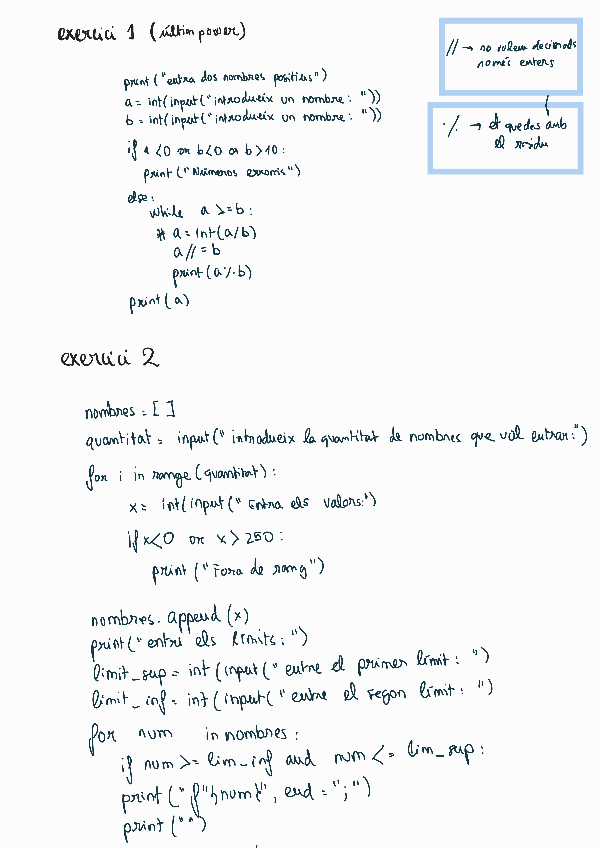 exercici 1 (últim power)
// → no volem decimals
només enters
% → et quedes amb
el residu
print("entra dos nombres positius")
a = int(input("introdueix un nombre: "))
b = int(input("introdueix un nombre: "))
if a <0 or b<0 or b>10:
print("Números erronis")
else:
while a >=b:
# a=int(a/b)
a//=b
print(a%b)
print(a)
exercici 2
nombres = [ ]
quantitat = input(" introdueix la quantitat de nombres que vol entrar:")
for i in range (quantitat):
x= int(input(" Entra els valors:")
if x<0 or x>250:
print ("Fora de rang")
nombres. append (x)
print("entri els límits: ")
limit_sup = int (input(" entre el primer límit: ")
limit_inf= int (input("entre el segon límit: ")
for num in nombres:
if num >= lim_inf and num <= lim_sup:
print ("f"{num}", end = ";")
print ("")